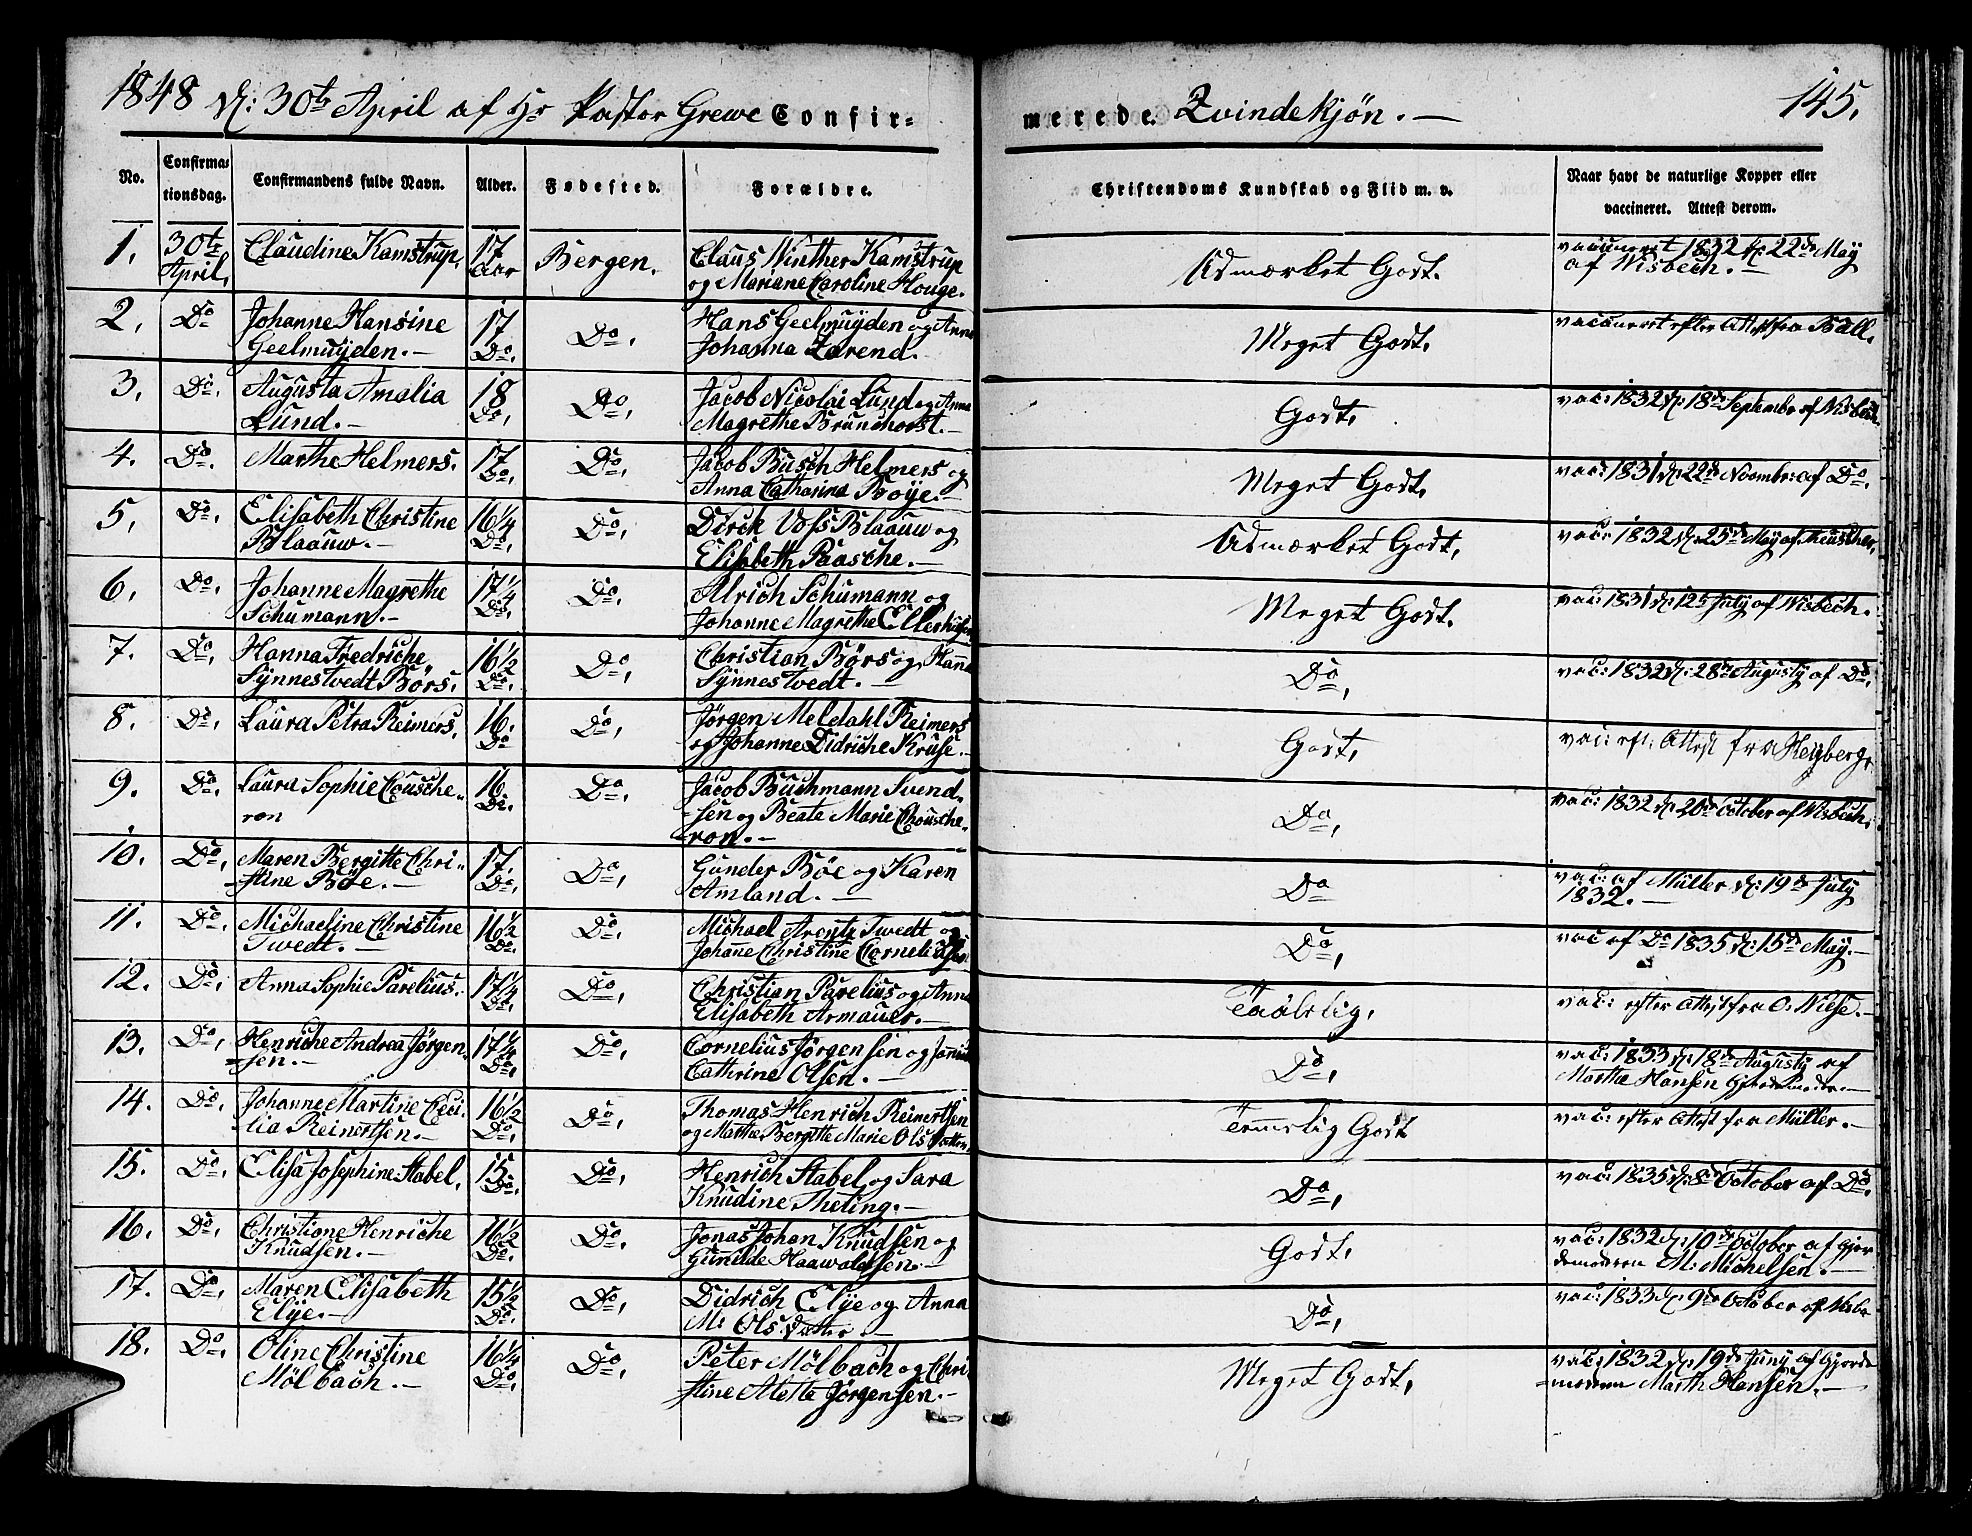 1848 d: 30te April af Hr Pastor Grewe Confir-
merede. Qvindekjøn. —
145.
No.
Confirma-
tionsdag.
Confirmandens fulde Navn.
Alder.
Fødested.
Forældre.
Christendoms Kundskab og Flid m. v.
Naar havt de naturlige Kopper eller
vaccineret. Attest derom.
1. 30te April, Claudine Kamstrup. 17 Aar Bergen. Claus Winther Kamstrup
og Mariane Caroline Houge. Udmærket Godt. vaccineret 1832 d: 22de May
af Wisbech. —
2. Do Johanne Hansine
Geelmuyden. — 17 Do. Do. Hans Geelmuyden og Anna
Johanna Zarend. Meget Godt. vaccineret efter Attest fra Ball.
3. Do. Augusta Amalia
Lund. — 18 Do. Do. Jacob Nicolai Lund og Anna
Magrethe Brunchorst. — Godt. vac: 1832 d: 18de September af Wisbech.
4. Do. Marthe Helmers. 17 Do. Do. Jacob Busch Helmers og
Anna Catharina Boye. — Meget Godt. vac: 1831 d: 22de November: af Do.
5. Do. Elisabeth Christine
Blaauw. — 16 1/4 Do. Do. Dirck Voss Blaauw og
Elisbeth Paasche. — Udmærket Godt. vac: 1832 d: 25de May af
6. Do. Johanne Magrethe
Schumann. — 17 1/4 Do. Do. Ulrich Schumann og
Johanne Magrethe Ellerhusen Meget Godt. vac: 1831 d: 12te July af Wisbech.
7. Do. Hanna Fredriche
Synnestvedt Börs. 16 1/2 Do. Do. Christian Börs og Hanna
Synnestvedt. — Do. vac: 1832 d: 28de Augusty af Do.
8. Do. Laura Petra Reimers. 16. Do Do. Jörgen Meldahl Reimers
og Johanne Didriche Kruse. — Godt. vac: eft: Attest fra Heyberg.
9. Do. Laura Sophie Cousche-
ron 16. Do. Do. Jacob Buchmann Svend-
-sen og Beate Marie Chousche-
-ron. — Do. vac: 1832 d: 20de October af Wisbech.
10. Do. Maren Bergitte Chri-
-stine Böe. — 17. Do. Do. Gunder Böe og Karen
Amland. — Do vac: af Müller d: 19de July
1832. —
11. Do. Michaeline Christine
Twedt. — 16 1/2 Do. Do. Michael Arentz Twedt og
Johanne Christine Cornelidsen Do. vac af Do 1835 d: 15de May. —
12. Do. Anna Sophie Parelius. 17 1/4 Do. Do. Christian Parelius og Anna
Elisabeth Armauer. — Taalelig. vac: efter Attest fra O. Wilse. —
13. Do. Henriche Andrea Jörgen-
=sen. — 17 1/4 Do. Do. Cornelius Jörgensen og
Cathrine Olsen. — Do. vac: 1833 d: 18de Augusty af
Martha Hansen Gjordemoder. —
14. Do. Johanne Martine Ceci-
lia Reinertsen. — 16 1/2 Do. Do. Thomas Henrich Reinertsen
og Martha Bergitte Marie Olsdatter. Temelig Godt vac: efter Attest fra Müller. —
15. Do. Elisa Josephine Stabel. 15 Do. Do. Henrich Stabel og Sara
Knudine Theting. — Do. vac: 1835 d: 8de October af Do.
16. Do. Christiane Henriche
Knudsen. — 16 1/2 Do. Do. Jonas Johan Knudsen og
Gunilde Haawaldsen. Godt. vac: 1832 d: 10de October af Gjor-
demoderen M: Michelsen. —
17. Do. Maren Elisabeth
Elye. — 15 1/2 Do. Do. Didrich Elye og Anna
M: Olsdatter. — Do. vac: 1833 d: 9de October af Wisbe-
18. Do. Oline Christine
Mölbach. — 16 1/4 Do. Do. Peter Mölbach og Chri-
stine Alette Jörgensen. — Meget Godt. vac: 1832 d: 19de Juny af Gjorde-
=moderen Marth Hansen. —